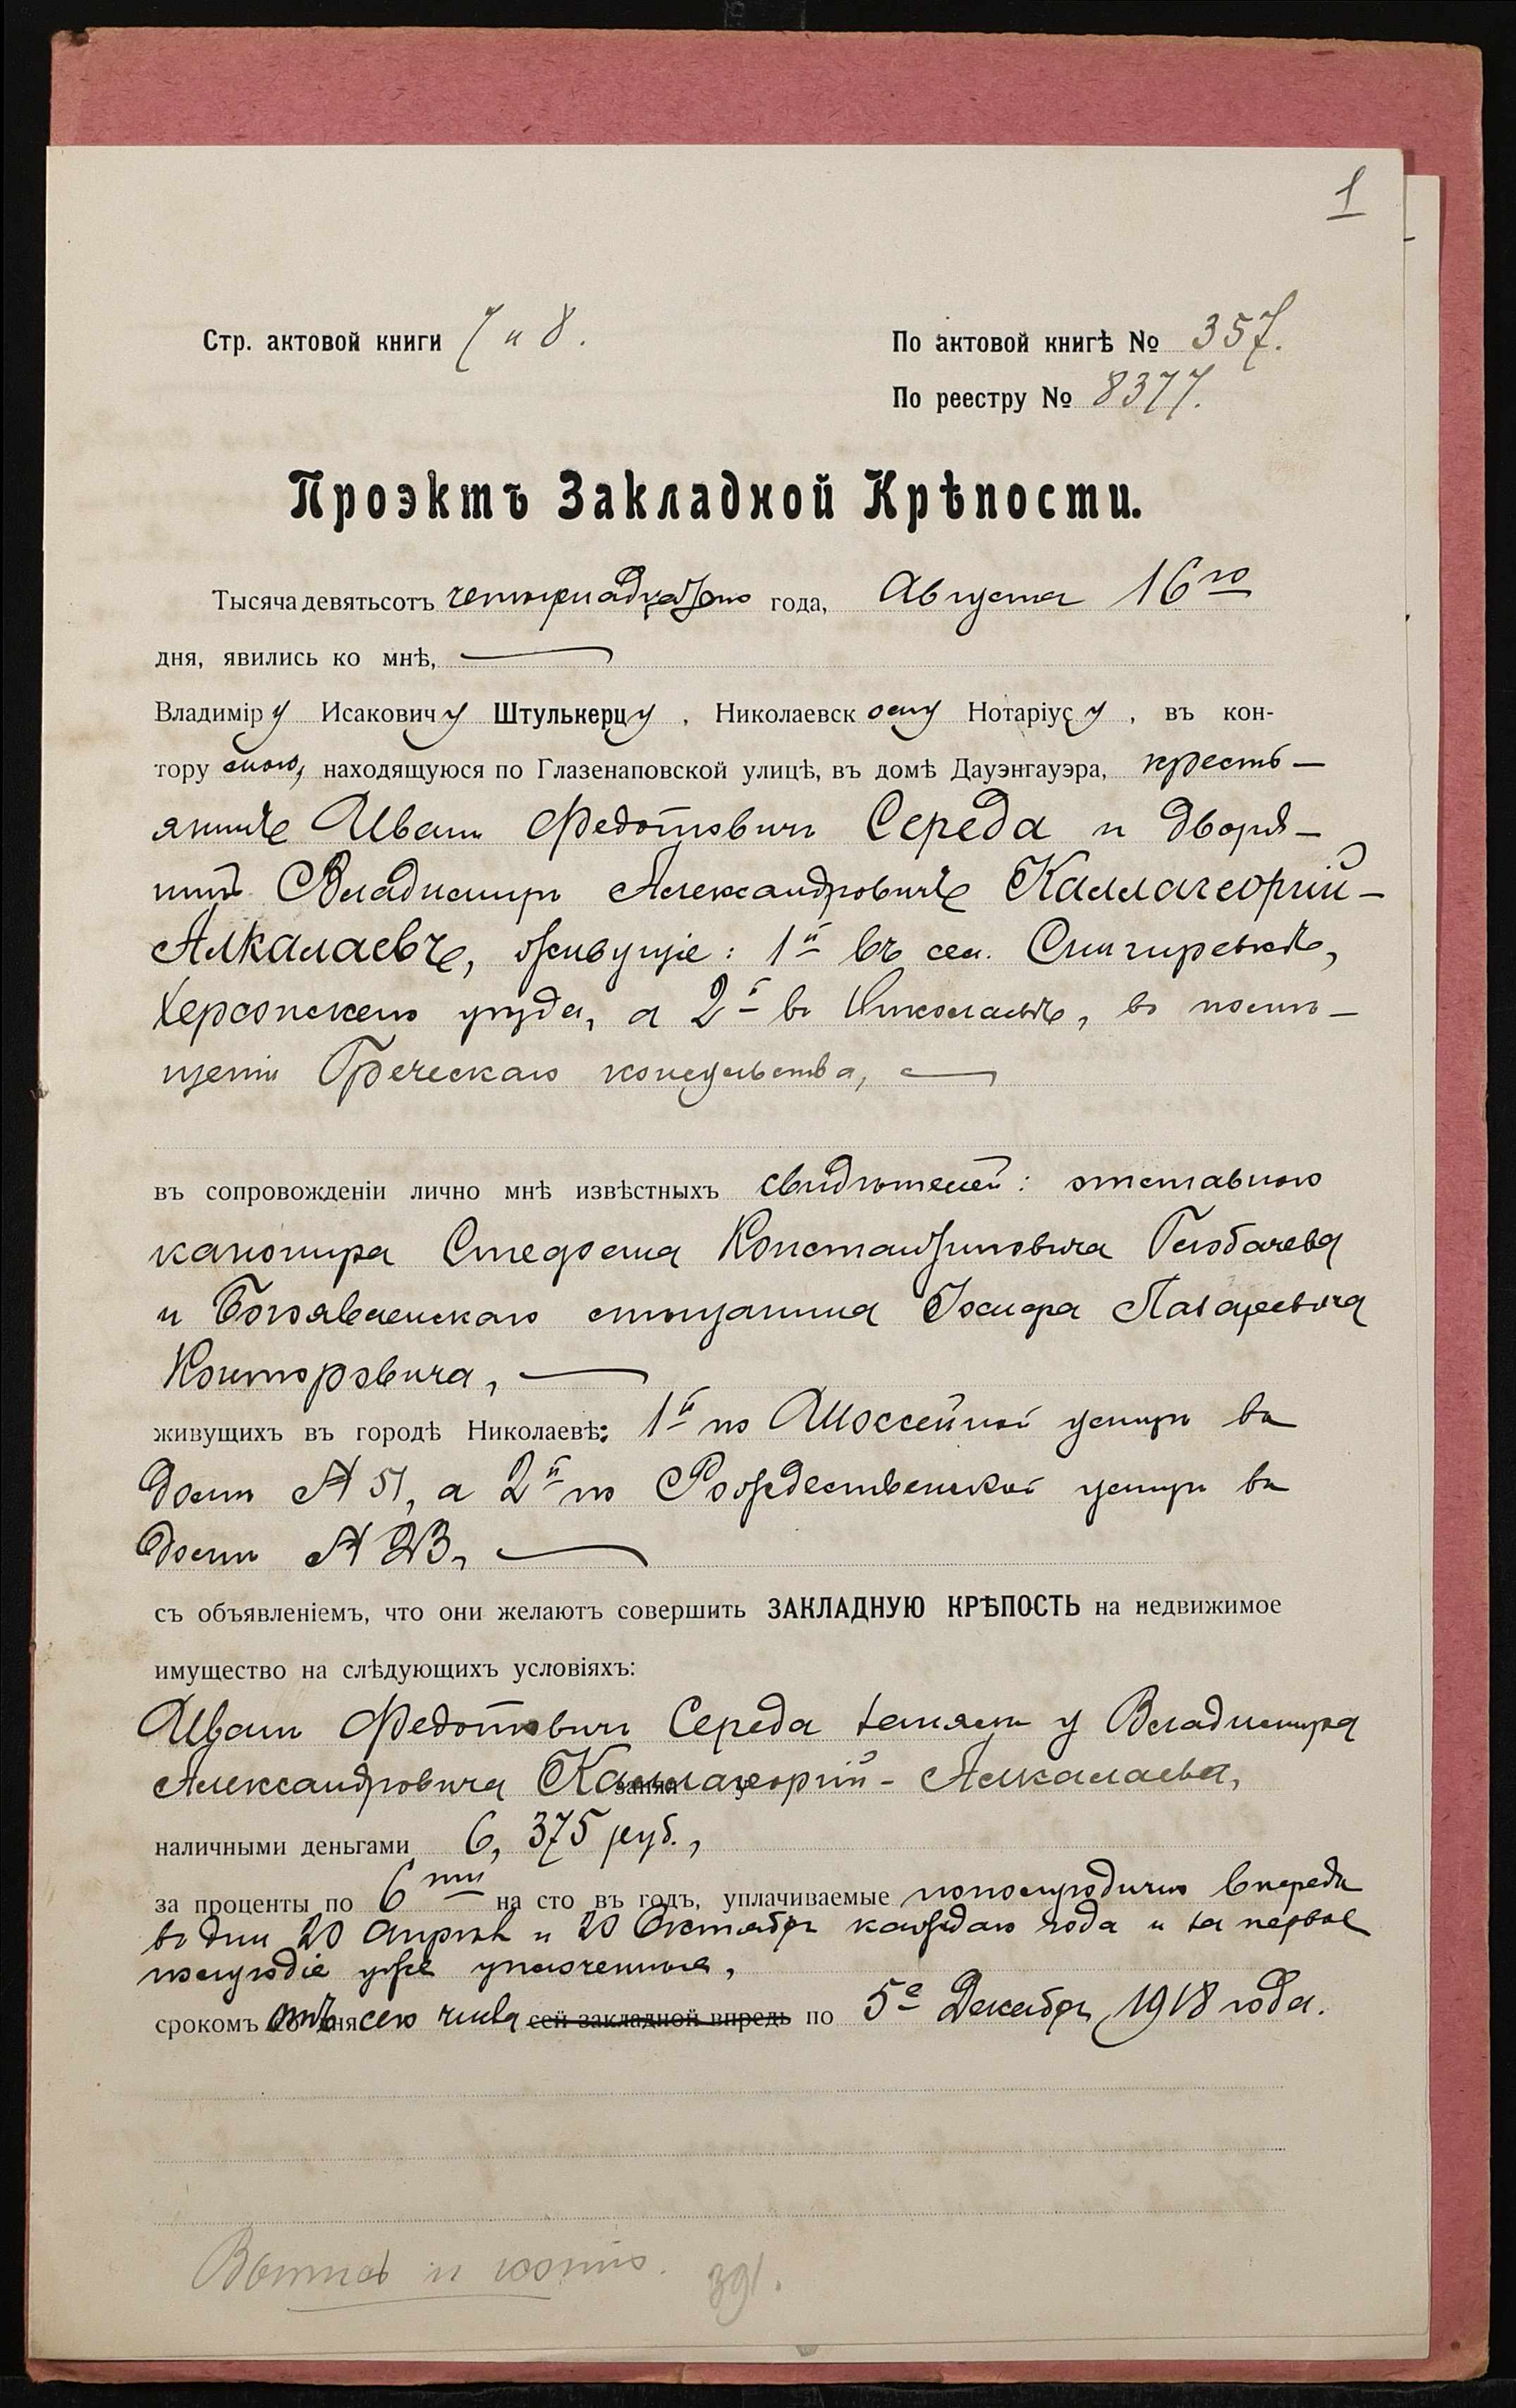 1
Стр. актовой книги 7 и 8.
По актовой книгѣ № 357.
По реестру № 8377.
Проэктъ Закладной Крѣпости.
Тысяча девятьсотъ четырнадцатаго года, Августа 16го
дня, явились ко мнѣ,
Владиміру Исаковичу Штулькерцу, Николаевскому Нотаріусу, въ кон-
тору мою, находящуюся по Глазенаповской улицѣ, въ домѣ Дауэнгауэра, кресть-
янинъ Иванъ Федотовичъ Середа и дворя-
нинъ Владимиръ Александровичъ Каллагеоргій-
Алкалаевъ, живущіе: 1й въ сел. Снигиревкѣ,
Херсонскаго уѣзда, а 2й въ Николаевѣ, въ помѣ-
щеніи Греческаго консульства,
въ сопровожденіи лично мнѣ извѣстныхъ свидѣтелей: отставного
канонира Стефана Константиновича Глобачева
и Богоявленскаго мѣщанина Іосифа Лазаревича
Конторовича,
живущихъ въ городѣ Николаевѣ: 1й по Шоссейной улицѣ въ
домѣ № 51, а 2й по Рождественской улицѣ въ
домѣ № 23,
съ объявленіемъ, что они желаютъ совершить ЗАКЛАДНУЮ КРѢПОСТЬ на недвижимое
имущество на слѣдующихъ условіяхъ:
Иванъ Федотовичъ Середа занялъ у Владимира
Александровича Каллагеоргій-Алкалаева,
занялъ у
наличными деньгами 6,375 руб.,
за проценты по 6ти на сто въ годъ, уплачиваемые пополугодично впередъ
въ дни 20 Апрѣля и 20 Октября каждаго года и за первое
полугодіе уже уплоченные,
срокомъ отъ сего числа сей закладной впредь по 5е Декабря 1918 года.
Выпись и копію. 391.